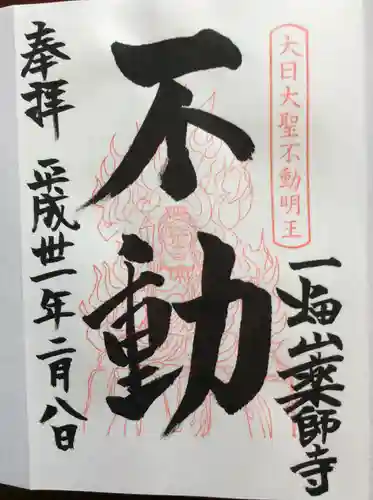 大日大聖不動明王
奉拝
不動
平成卅一年二月八日
一畑山薬師寺